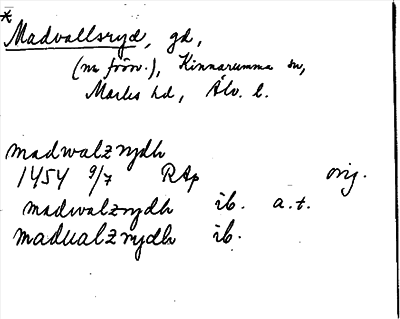 *
Madvallsryd, gd,
(nu försv.), Kinnarumma sn,
Marks hd, Älv. l.
madwalzrydh
1454 9/7 RAp orig.
madwalzrydh ib. a.t.
madualzrydh ib.